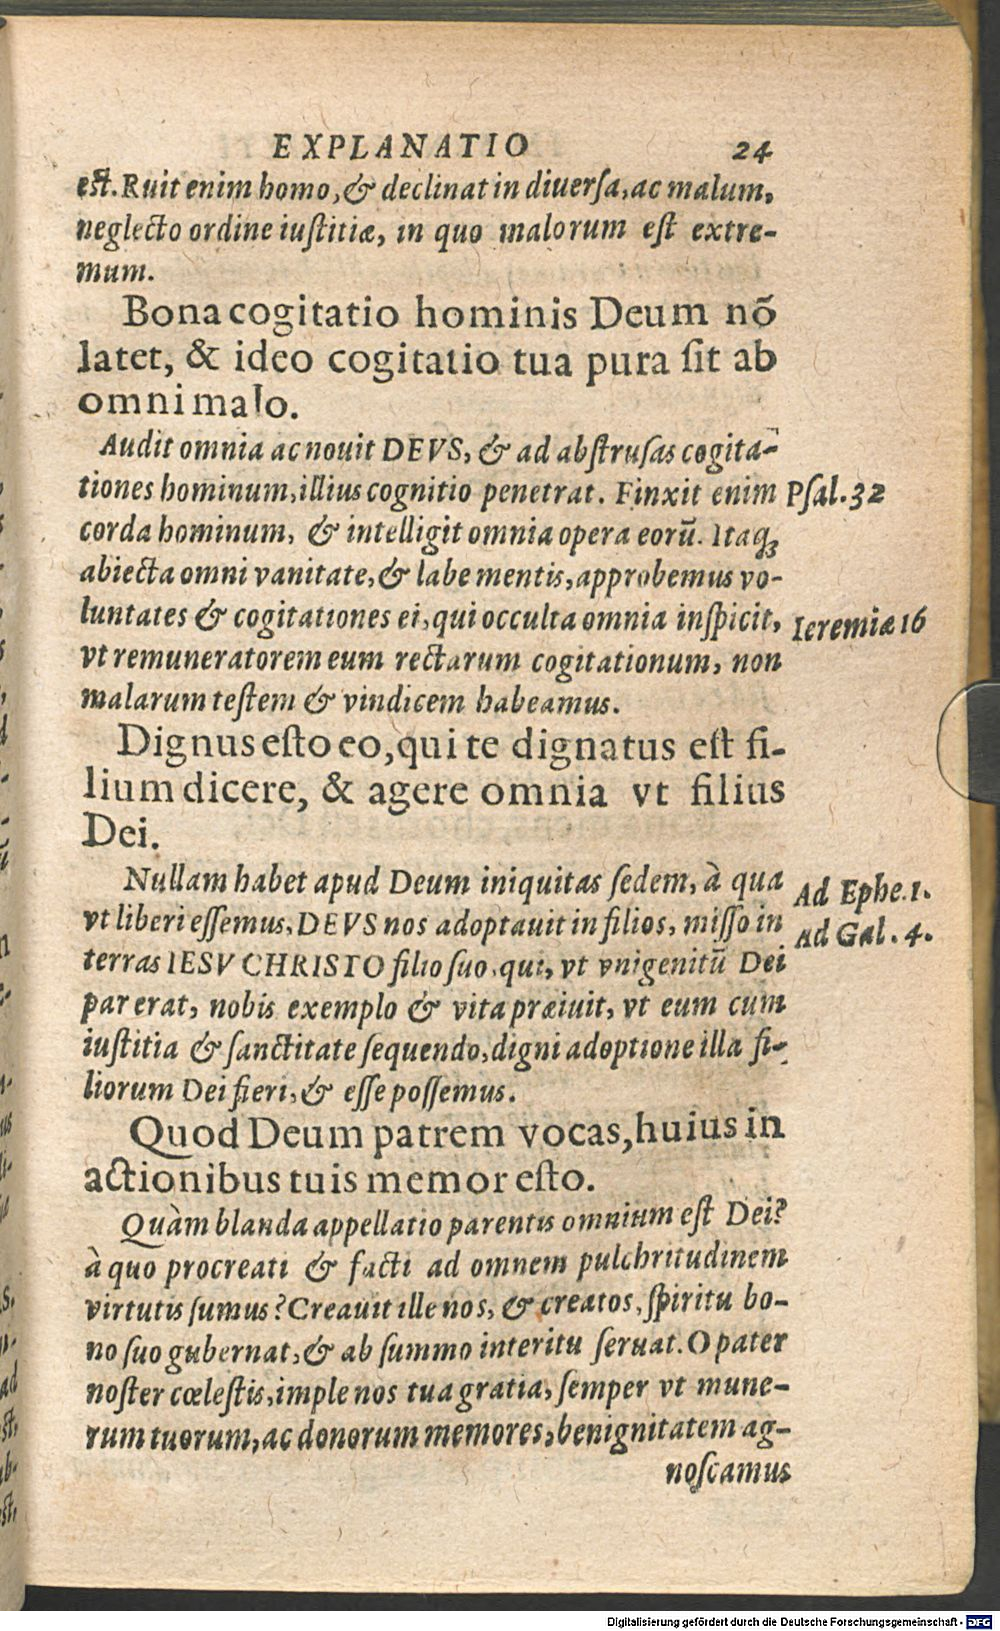 EXPLANATIO 24
est. Ruit enim homo, & declinat in diuersa, ac malum,
neglecto ordine iustitiæ, in quo malorum est extre-
mum.
Bona cogitatio hominis Deum nõ
latet, & ideo cogitatio tua pura sit ab
omni malo.
Audit omnia ac nouit DEVS, & ad abstrusas cogita-
tiones hominum, illius cognitio penetrat. Finxit enim Psal. 32
corda hominum, & intelligit omnia opera eorũ. Itaq;
abiecta omni vanitate, & labe mentis, approbemus vo-
luntates & cogitationes ei, qui occulta omnia inspicit, Ieremiæ 16
vt remuneratorem eum rectarum cogitationum, non
malarum testem & vindicem habeamus.
Dignus esto eo, qui te dignatus est fi-
lium dicere, & agere omnia vt filius
Dei.
Nullam habet apud Deum iniquitas sedem, à qua Ad Ephe. 1.
vt liberi essemus, DEVS nos adoptauit in filios, misso in Ad Gal. 4.
terras IESV CHRISTO filio suo, qui, vt vnigenitũ Dei
par erat, nobis exemplo & vita præiuit, vt eum cum
iustitia & sanctitate sequendo, digni adoptione illa fi-
liorum Dei fieri, & esse possemus.
Quod Deum patrem vocas, huius in
actionibus tuis memor esto.
Quàm blanda appellatio parentis omnium est Dei?
à quo procreati & facti ad omnem pulchritudinem
virtutis sumus? Creauit ille nos, & creatos, spiritu bo-
no suo gubernat, & ab summo interitu seruat. O pater
noster cœlestis, imple nos tua gratia, semper vt mune-
rum tuorum, ac donorum memores, benignitatem ag-
noscamus
Digitalisierung gefördert durch die Deutsche Forschungsgemeinschaft - DFG